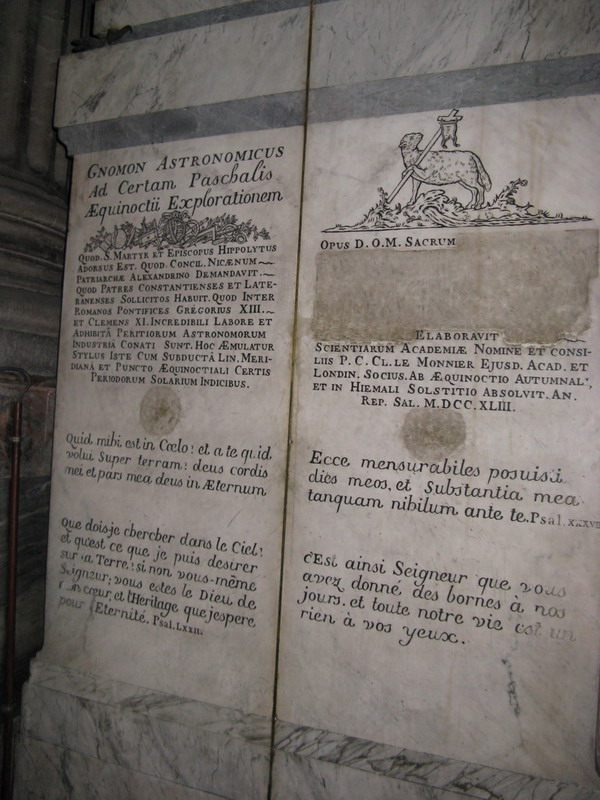 GNOMON ASTRONOMICUS
Ad Certam Paschalis
Æquinoctii Explorationem
QUOD. S. MARTYR ET EPISCOPUS HIPPOLYTUS
ADORSUS EST. QUOD. CONCIL. NICÆNUM
PATRIARCHÆ ALEXANDRINO DEMANDAVIT.
QUOD PATRES CONSTANTIENSES ET LATE-
RANENSES SOLLICITOS HABUIT. QUOD INTER
ROMANOS PONTIFICES GREGORIUS XIII.
ET CLEMENS XI. INCREDIBILI LABORE ET
ADHIBITÂ PERITIORUM ASTRONOMORUM
INDUSTRIA CONATI SUNT. HOC ÆMULATUR
STYLUS ISTE CUM SUBDUCTÂ LIN. MERI-
DIANÂ ET PUNCTO ÆQUINOCTIALI CERTIS
PERIODORUM SOLARIUM INDICIBUS.
Quid mihi est in Cœlo? et a te quid
volui Super terram? deus cordis
mei, et pars mea deus in Æternum.
que dois-je chercher dans le Ciel?
et qu'est ce que je puis desirer
sur la Terre, si non vous-même
Seigneur; vous estes le Dieu de
mon cœur, et l'Heritage que j'espere
pour l'Eternité. Psal. LXXII.
OPUS D.O.M. SACRUM
ELABORAVIT
SCIENTIARUM ACADEMIÆ NOMINE ET CONSI-
LIIS P. C. CL. LE MONNIER EJUSD. ACAD. ET
LONDIN. SOCIUS. AB ÆQUINOCTIO AUTUMNAL.
ET IN HIEMALI SOLSTITIO ABSOLVIT. AN.
REP. SAL. M.DCC.XLIII.
Ecce mensurabiles posuisti
dies meos, et Substantia mea
tanquam nihilum ante te. Psal.
c'Est ainsi Seigneur que vous
avez donné, des bornes à nos
jours. et toute notre vie est un
rien à vos yeux.